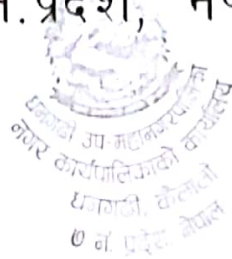 नं. प्रदेश, ने
धनगढी उप-महानगरपालिका
नगर कार्यपालिकाको कार्यालय
धनगढी, कैलाली
७ नं. प्रदेश, नेपाल